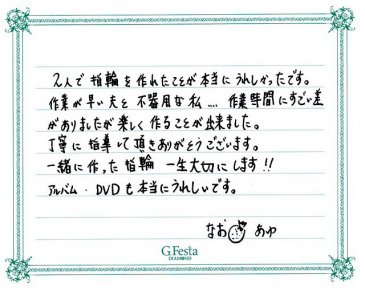 2人で指輪を作れたことが本当にうれしかったです。
作業が早い夫と不器用な私.... 作業時間にすごい差
がありましたが楽しく作ることが出来ました。
丁寧に指導して頂きありがとうございます。
一緒に作った指輪 一生大切にします!!
アルバム・DVDも本当にうれしいです。
なお あゆ
G.Festa
DIAMOND